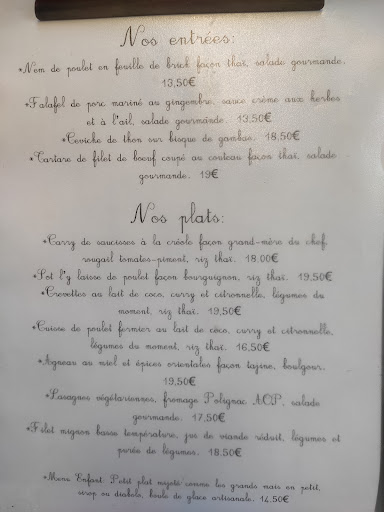 Nos entrées:
*Nem de poulet en feuille de brick façon thaï, salade gourmande.
13,50€
*Falafel de porc mariné au gingembre, sauce crème aux herbes
et à l'ail, salade gourmande. 13,50€
*Ceviche de thon sur bisque de gambas. 18,50€
*Tartare de filet de boeuf coupé au couteau façon thaï, salade
gourmande. 19€
Nos plats:
*Carry de saucisses à la créole façon grand-mère du chef,
rougail tomates-piment, riz thaï. 18,00€
*Sot l'y laisse de poulet façon bourguignon, riz thaï. 19,50€
*Crevettes au lait de coco, curry et citronnelle, légumes du
moment, riz thaï. 19,50€
*Cuisse de poulet fermier au lait de coco, curry et citronnelle,
légumes du moment, riz thaï. 16,50€
*Agneau au miel et épices orientales façon tajine, boulgour.
19,50€
*Lasagnes végétariennes, fromage Polignac A.O.P, salade
gourmande. 17,50€
*Filet mignon basse température, jus de viande réduit, légumes et
purée de légumes. 18,50€
*Menu Enfant: Petit plat mijoté comme les grands mais en petit,
sirop ou diabolo, boule de glace artisanale. 14,50€